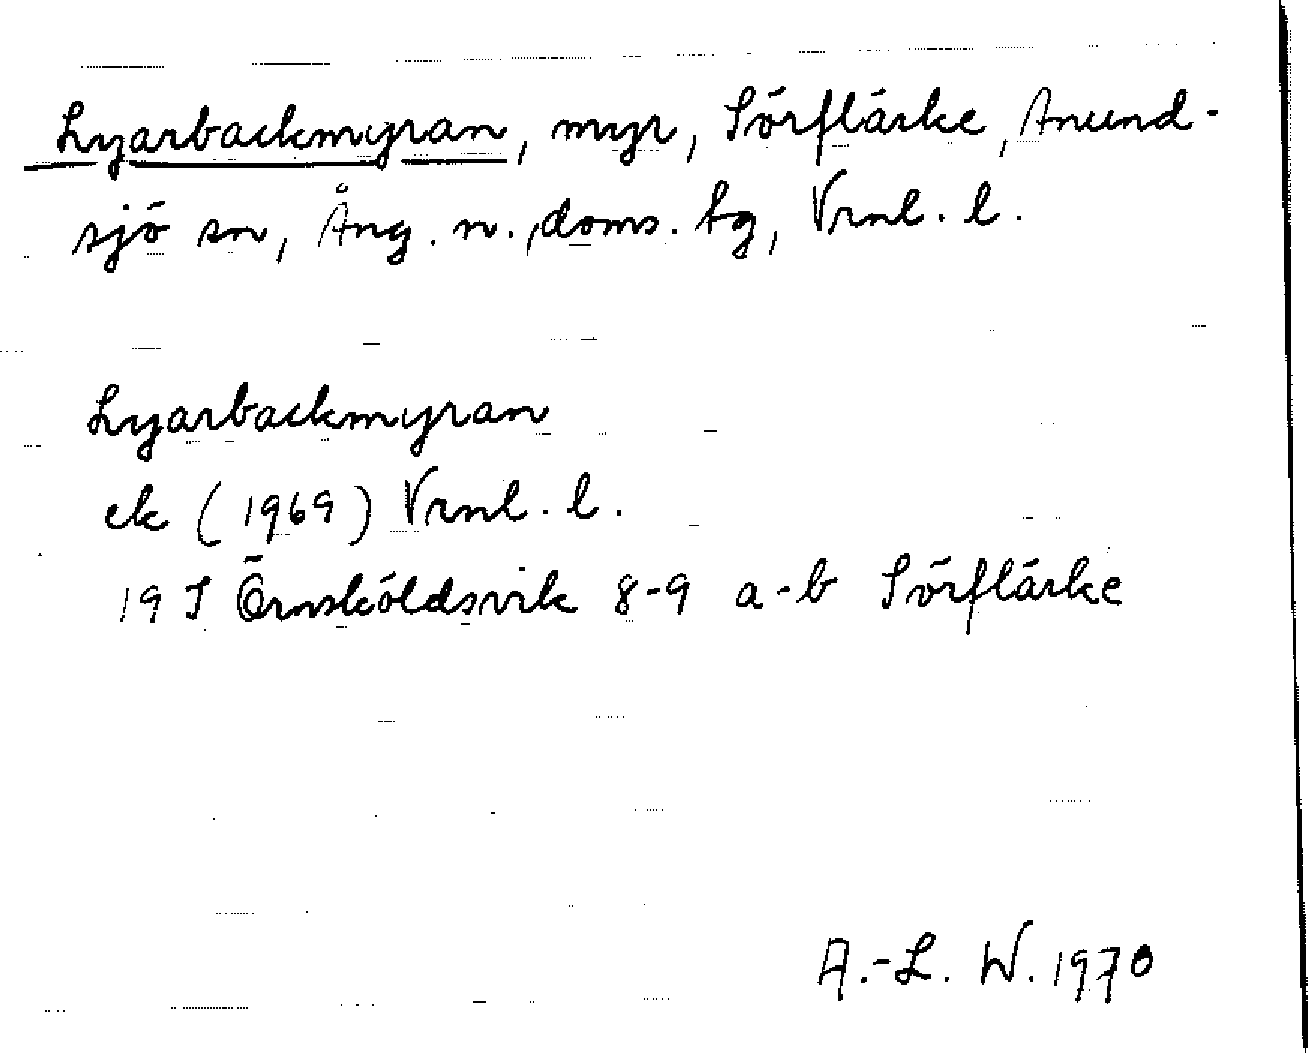 Lyarbackmyran, myr, Sörflärke, Anund-
sjö sn, Ång. n. doms. tg, Vrnl. l.
Lyarbackmyran
ek (1969) Vrnl. l.
19 J Örnsköldsvik 8-9 a-b Sörflärke
A.-L. W. 1970